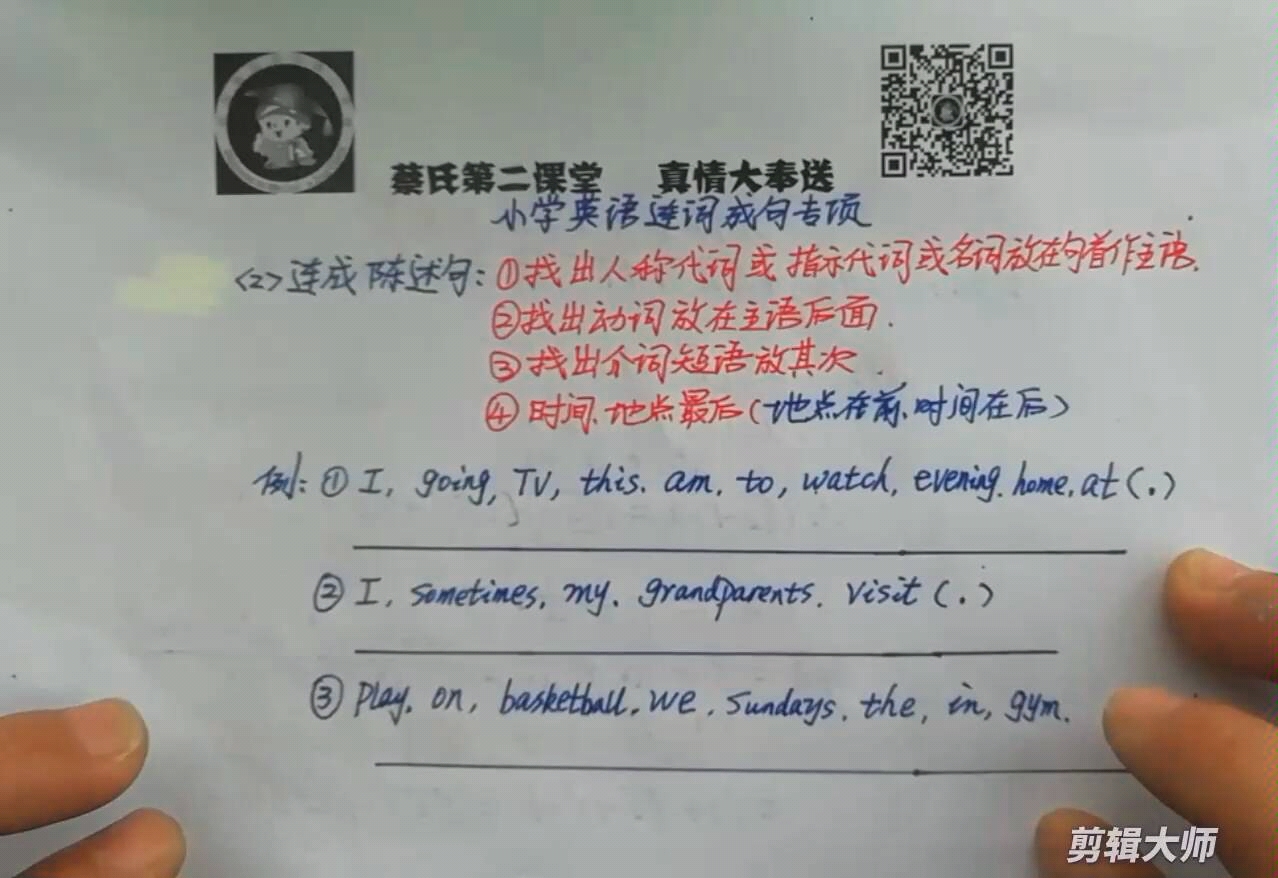 蔡氏第二课堂 真情大奉送
小学英语连词成句专项
<2>连成陈述句:①找出人称代词或指示代词或名词放在句首作主语.
②找出动词放在主语后面.
③找出介词短语放其次.
④时间、地点最后(地点在前、时间在后)
例:①I, going, TV, this. am, to, watch, evening. home, at(.)
②I, sometimes, my. grandparents. visit(.)
③play. on, basketball, we, Sundays. the, in, gym.
剪辑大师